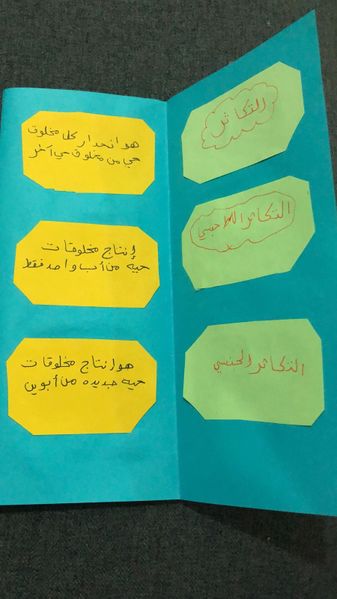 التكاثر
هو انحدار كل مخلوق
حي من مخلوق حي آخر
التكاثر اللاجنسي
إنتاج مخلوقات
حية من أب واحد فقط
التكاثر الجنسي
هو انتاج مخلوقات
حية جديده من أبوين